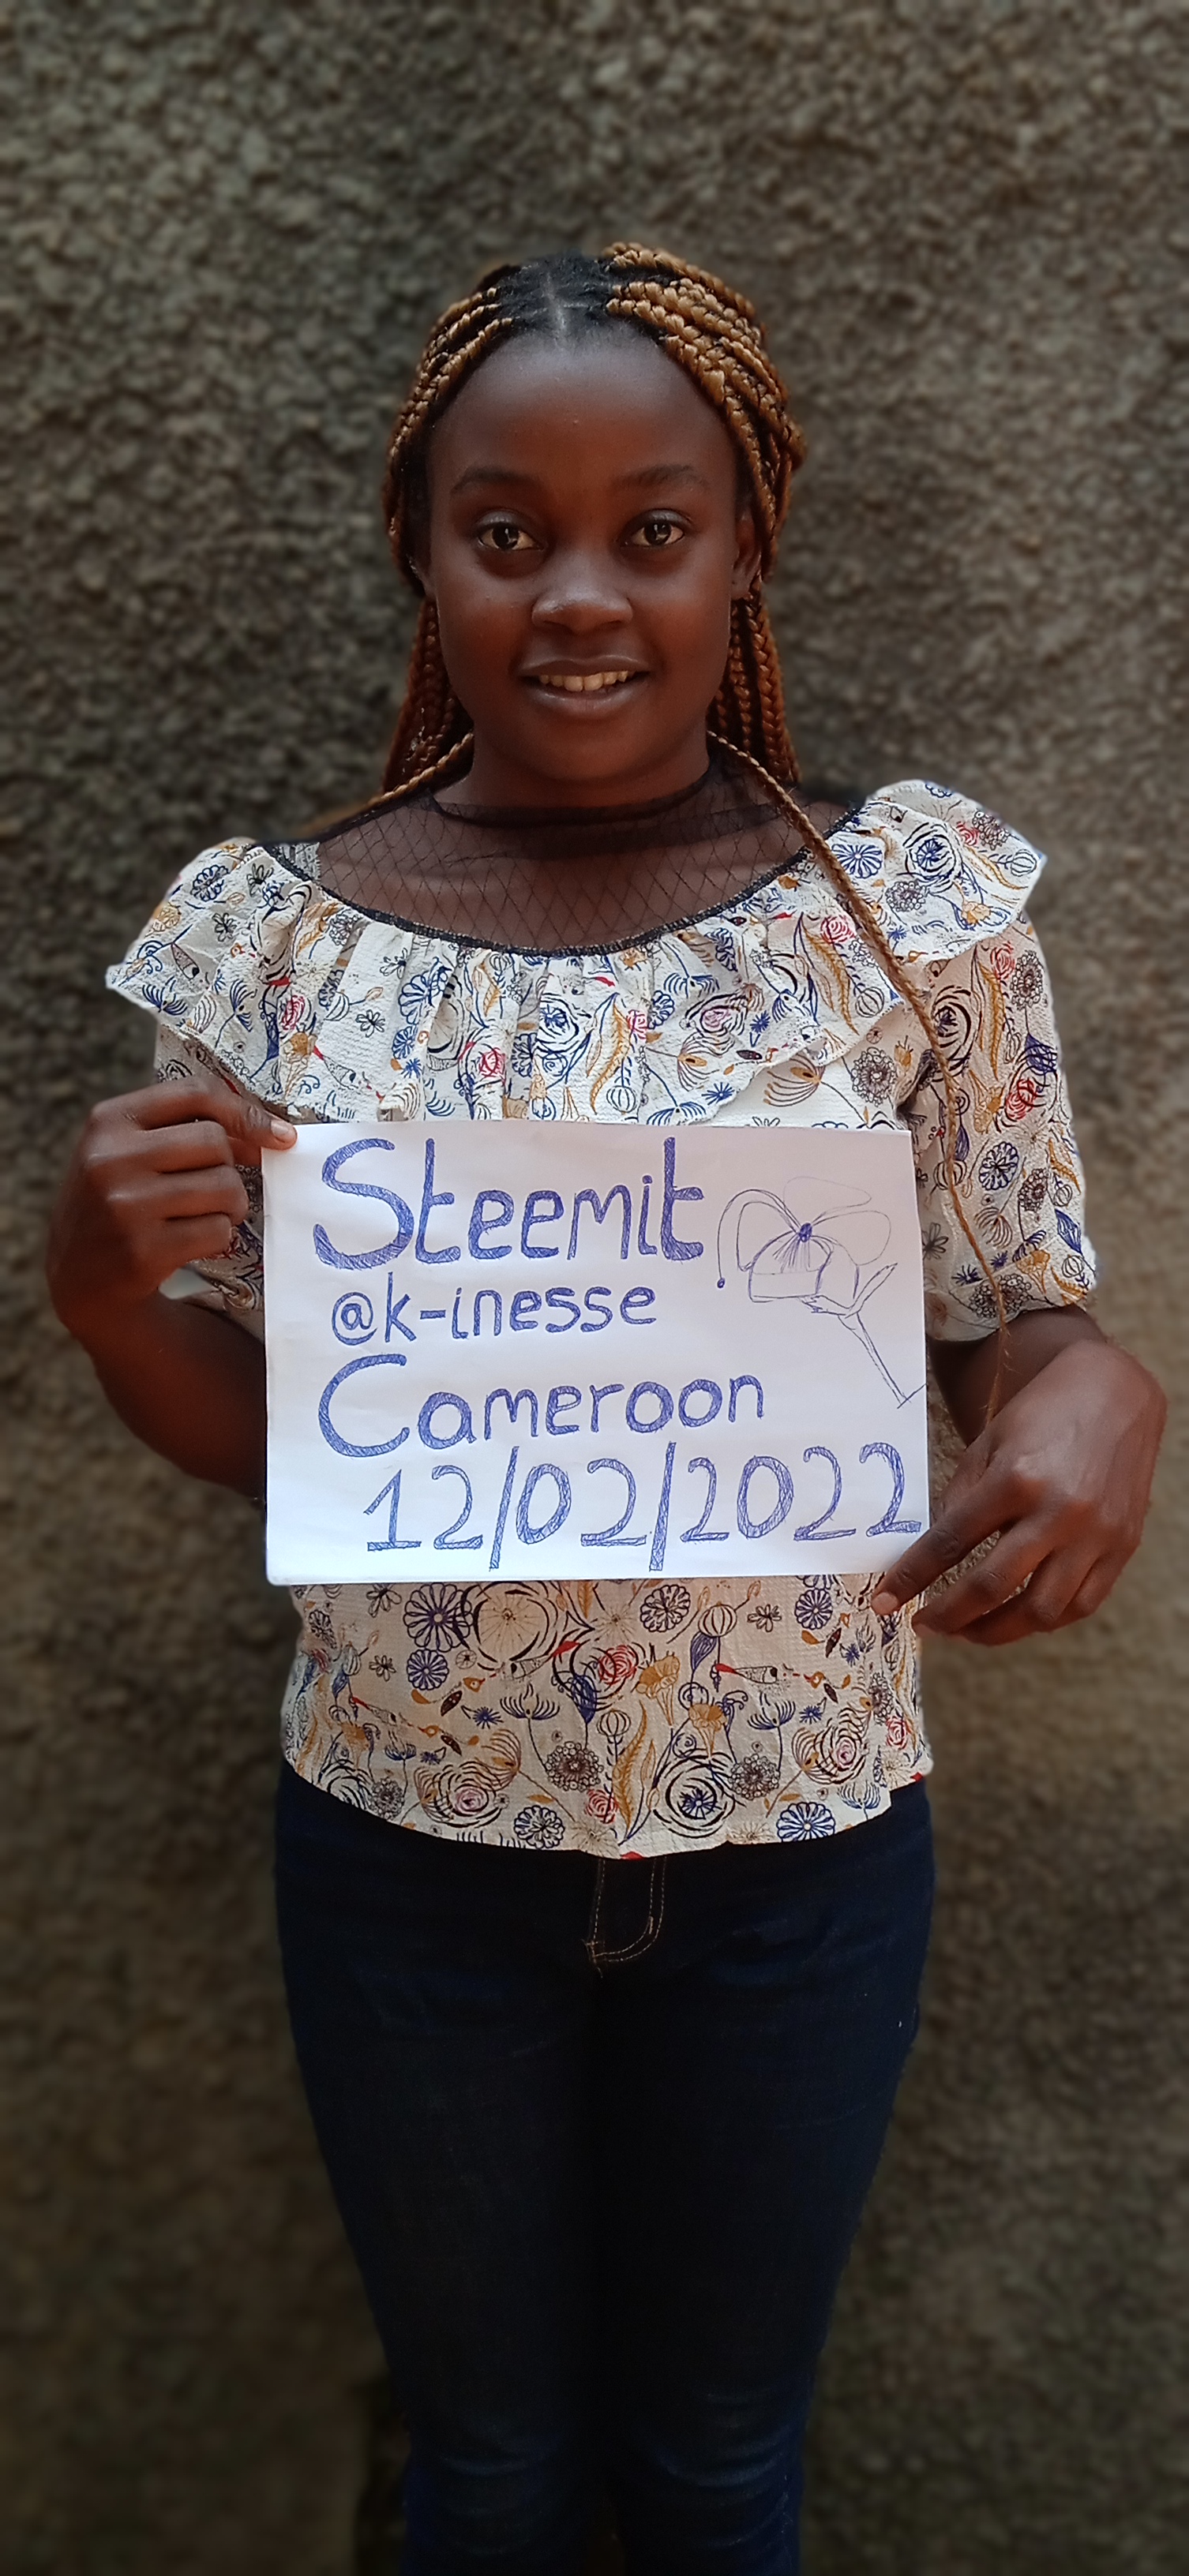 Steemit
@k-inesse
Cameroon
12/02/2022